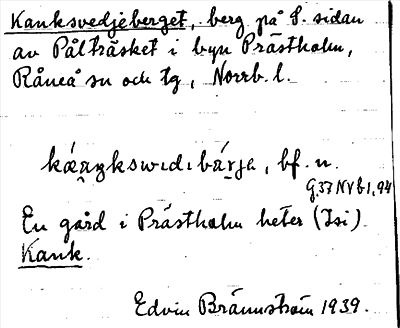 Kanksvedjeberget, berg på S. sidan
av Pålträsket i byn Prästholm,
Råneå sn och tg, Norrb. l.
kánkswidıbárje, bf. n.
G.37 NVb1,94
En gård i Prästholm heter (Isi)
Kank.
Edvin Brännström 1939.